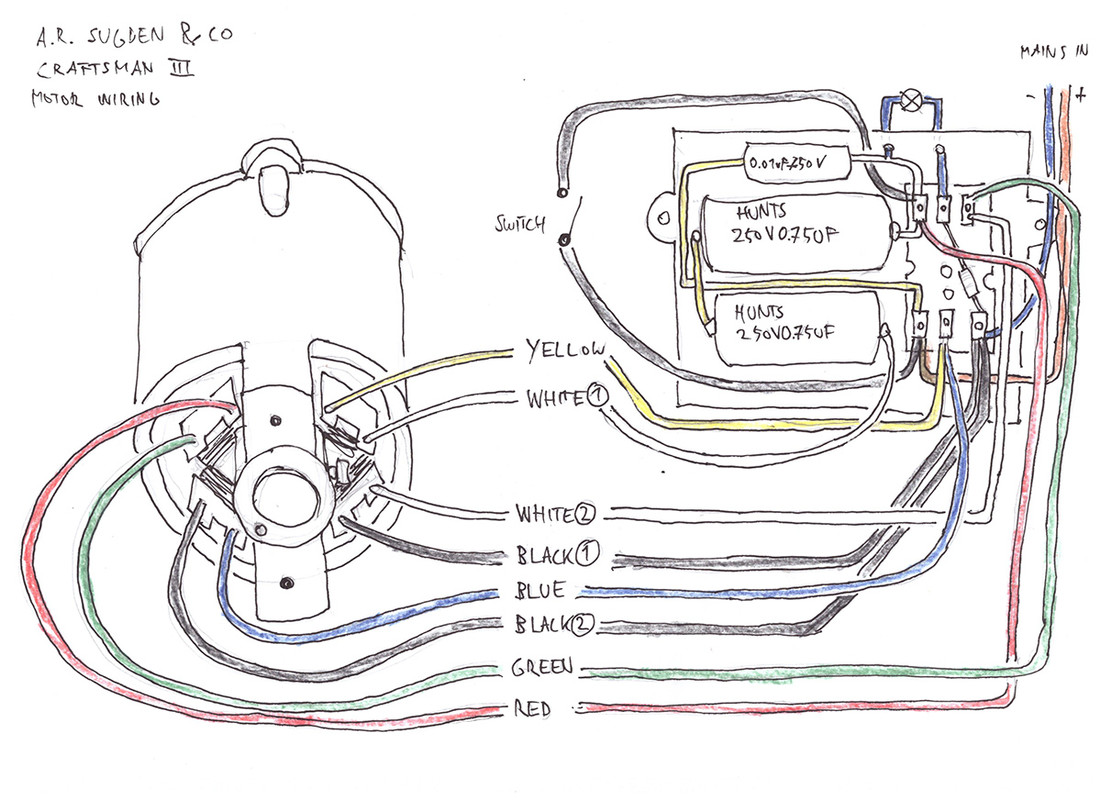 A.R. SUGDEN & CO
CRAFTSMAN III
MOTOR WIRING
MAINS IN
- +
0.01uF-250V
HUNTS
250V0.75UF
SWITCH
HUNTS
250V0.75UF
YELLOW
WHITE①
WHITE②
BLACK①
BLUE
BLACK②
GREEN
RED